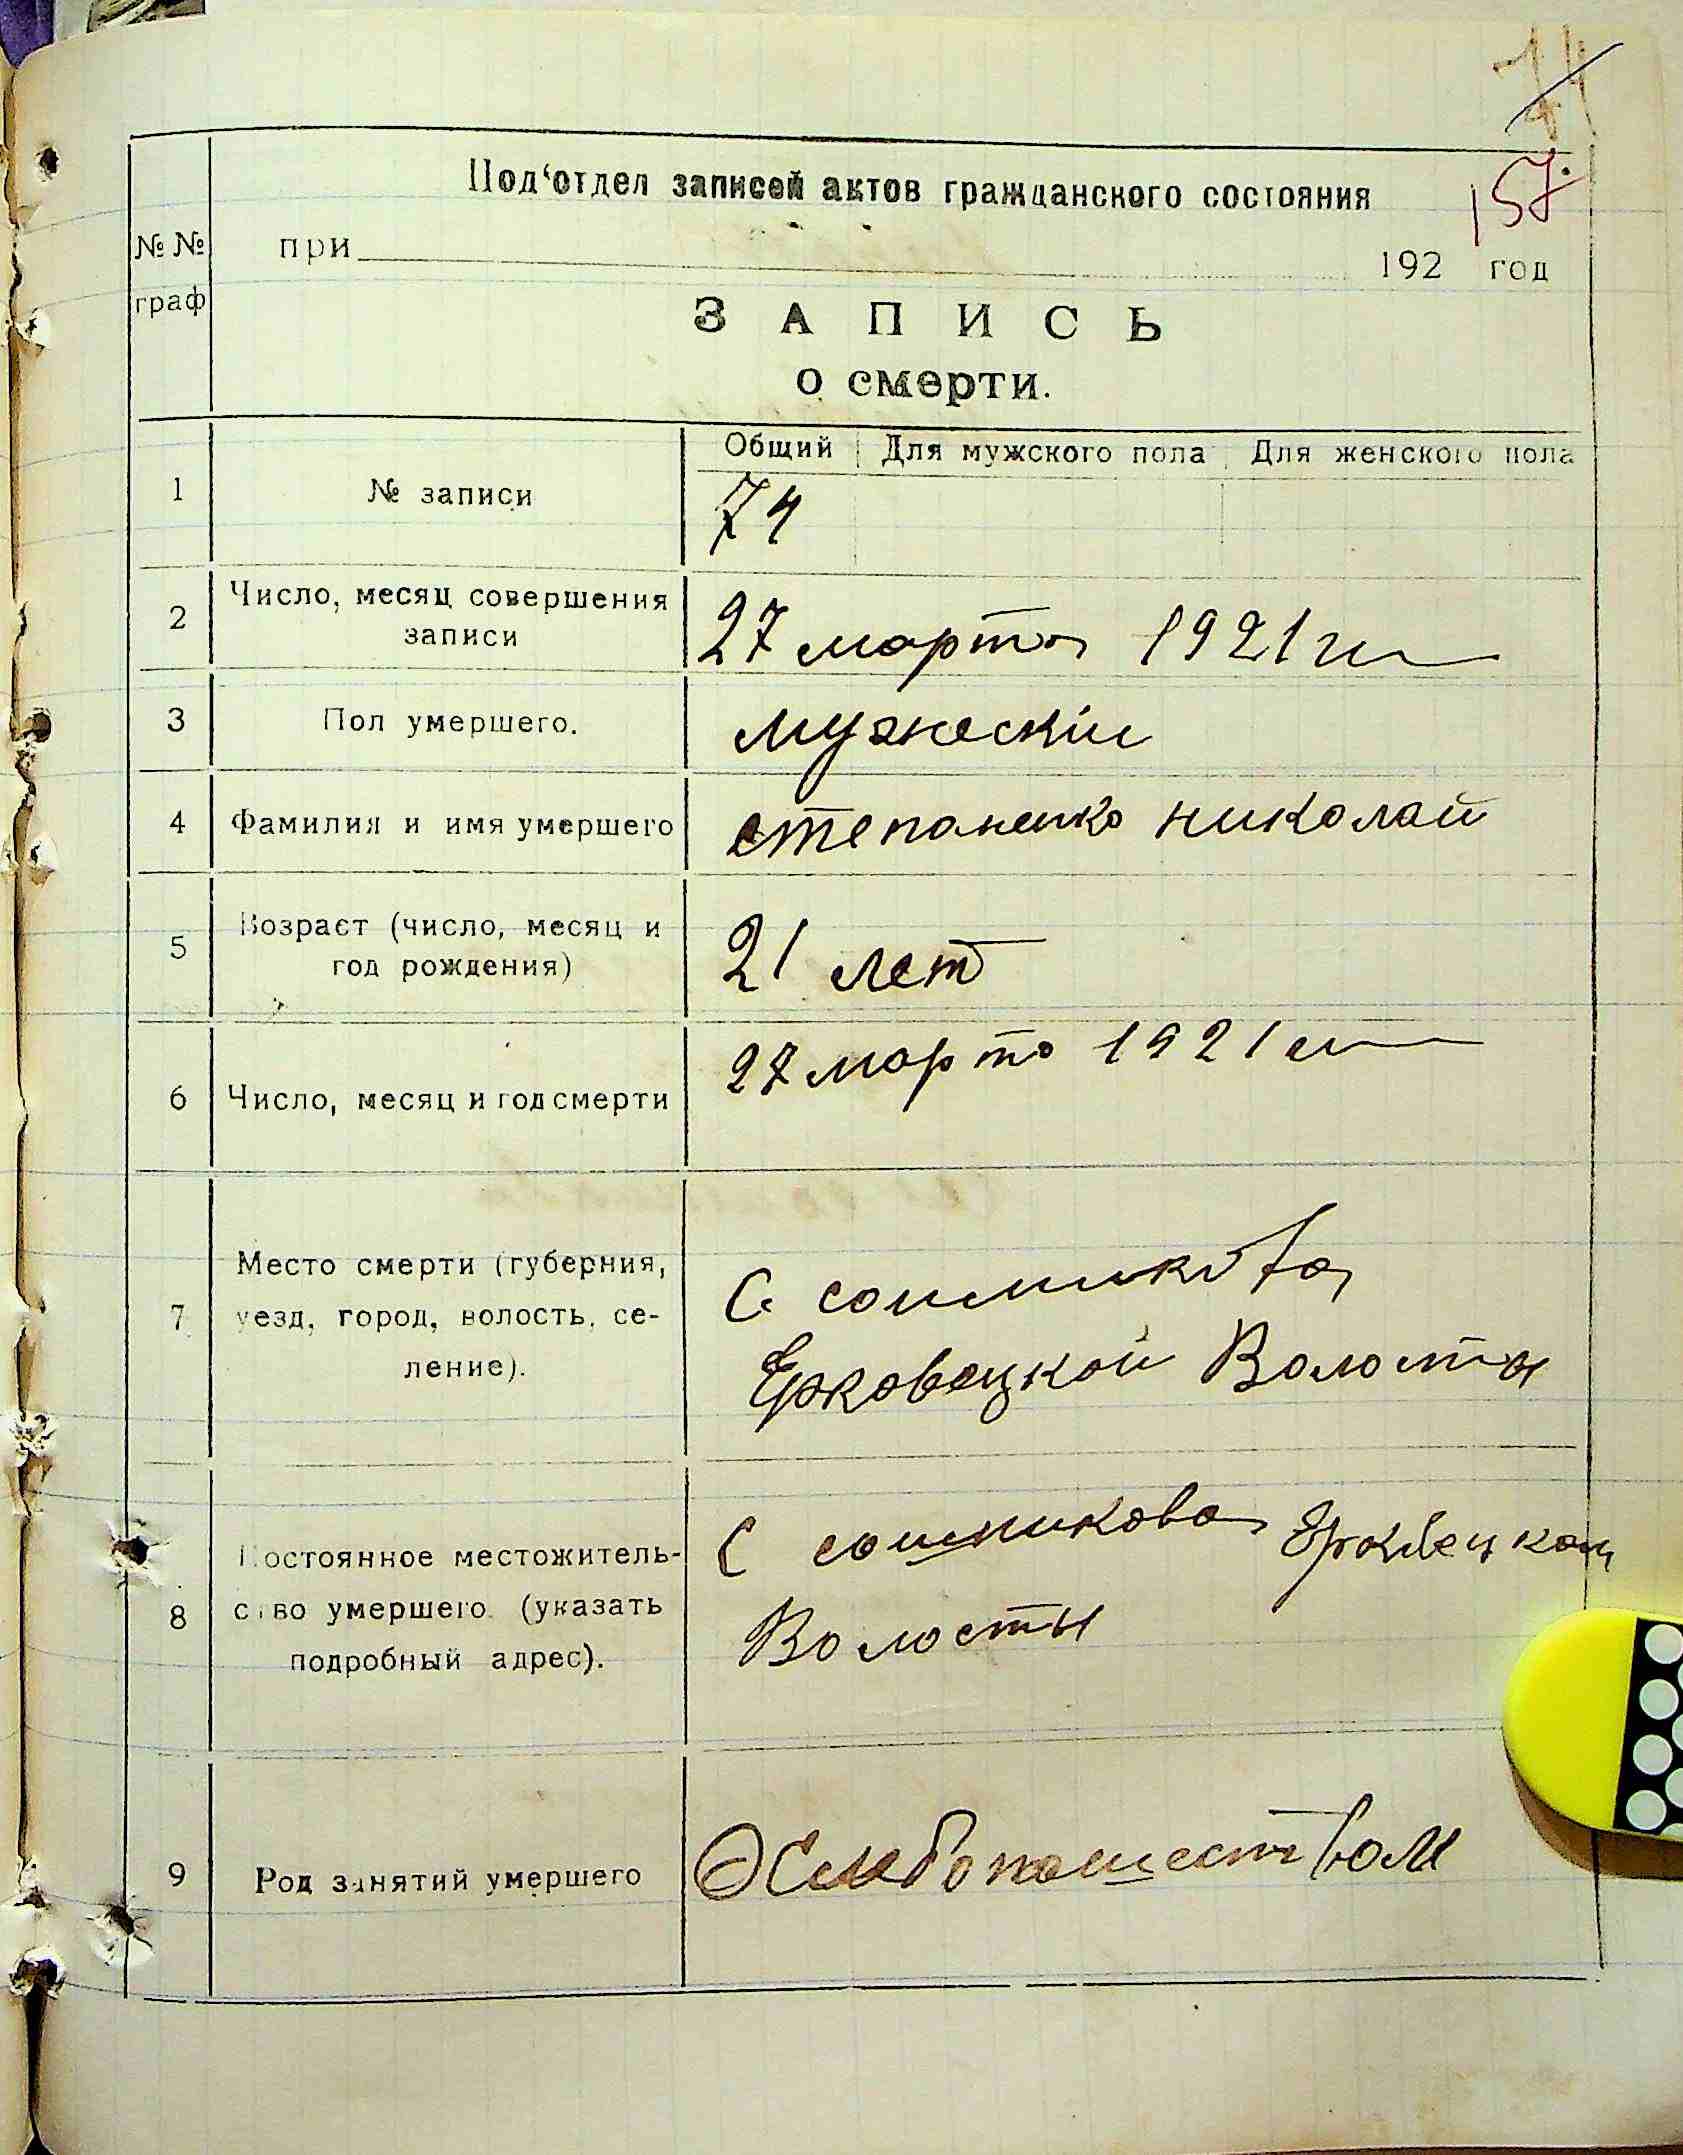 74
157.
Под‘отдел записей актов гражданского состояния
№ №
граф
при 192 год
ЗАПИСЬ
о смерти.
Общий Для мужского пола Для женского пола
1 № записи 74
2 Число, месяц совершения
записи
27 марта 1921 г
3 Пол умершего. мужескій
4 Фамилия и имя умершего степаненко николай
5 Возраст (число, месяц и
год рождения)
21 лет
6 Число, месяц и год смерти 27 марта 1921
7 Место смерти (губерния,
уезд, город, волость, се-
ление).
С сошникова
Ерковецкой Волости
8 Постоянное местожитель-
ство умершего. (указать
подробный адрес).
С сошникова Ерковецкой
Волости
9 Род занятий умершего Хлебопашеством